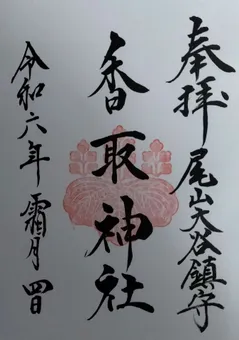 奉拝 尾山大谷鎮守
香取神社
令和六年 霜月 四日